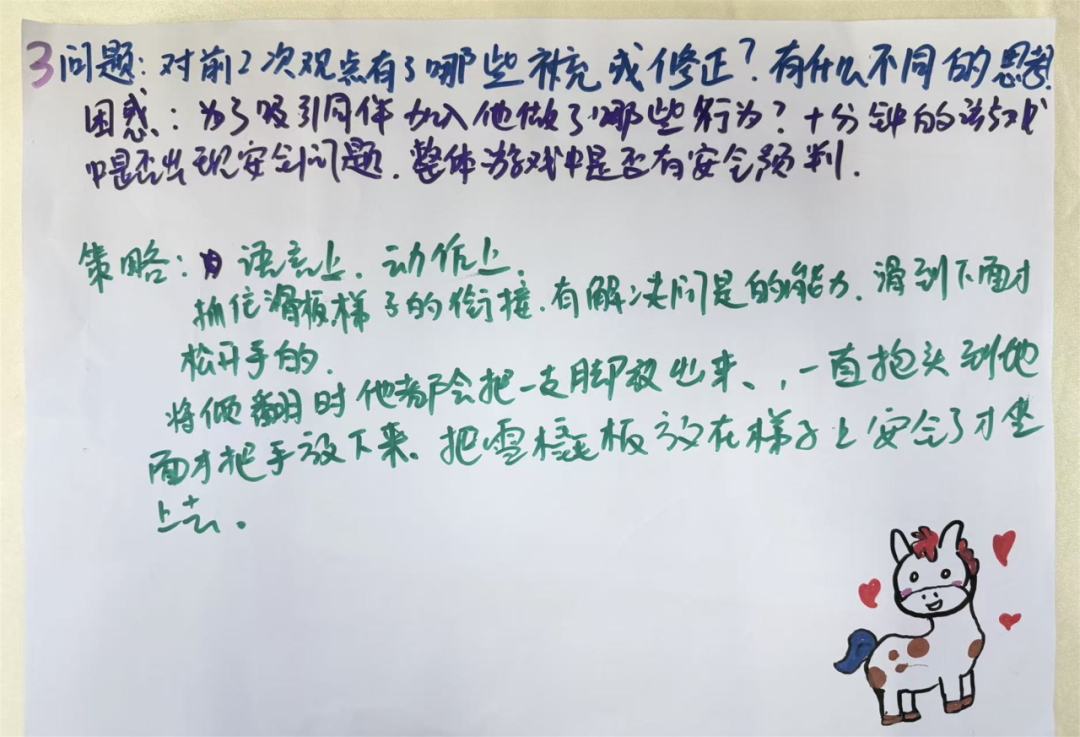 3 问题:对前2次观点有了哪些补充或修正?有什么不同的思考?
困惑:为了吸引同伴加入他做了哪些行为?十分钟的游戏
中是否出现安全问题.整体游戏中是否有安全预判.
策略:语言上.动作上.
抓住滑板梯子的衔接.有解决问是的能力.滑到下面才
松开手的.
将倾翻时他都会把一支脚放出来、,一直抱头到地
面才把手放下来.把雪橇板放在梯子上安全了才坐
上去.